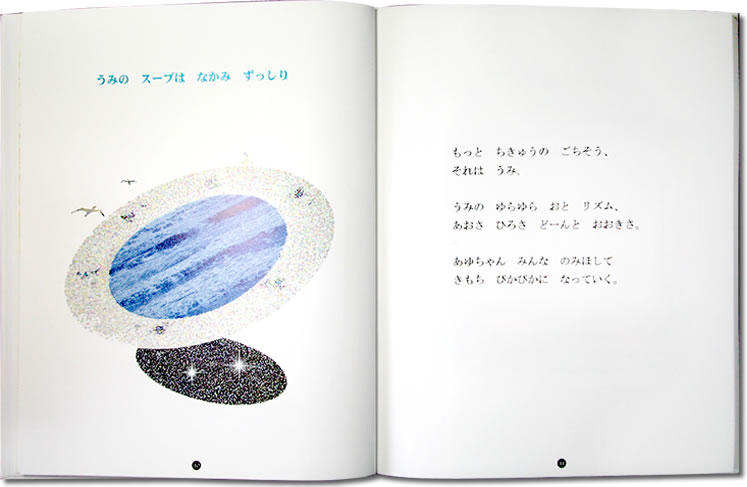 うみの　スープは　なかみ　ずっしり
もっと　ちきゅうの　ごちそう、
それは　うみ。
うみの　ゆらゆら　おと　リズム、
あおさ　ひろさ　どーんと　おおきさ。
あゆちゃん　みんな　のみほして
きもち　ぴかぴかに　なっていく。